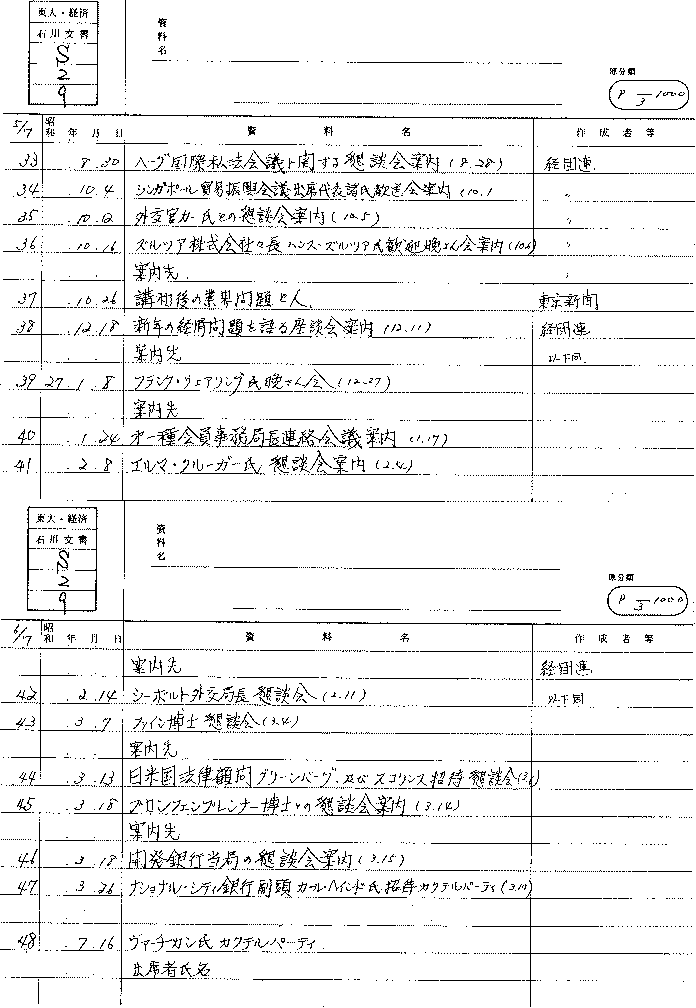 東大・経済
石川文書
S
2
9
資料名
原分類
P 3-1000
5/7 昭和 年 月 日 資料名 作成者等
33 . 8 . 30 ヘーグ国際私法会議に関する懇談会案内 (8.28) 経団連
34 . 10 . 4 シンガポール貿易振興会議出席代表諸氏歓送会案内 (10.1 〃
35 . 10 . 12 氏との懇談会案内 (10.5) 〃
36 . 10 . 16 ズルツア株式会社々長ハンス・ズルツア氏歓迎晩さん会案内 (10.6) 〃
案内先 . 〃
37 . 10 . 26 講和後の業界問題と人. 東京新聞
38 . 12 . 18 新年の経済問題を語る座談会案内 (12.11) 経団連
案内先 以下同
39 27 . 1 . 8 フランク・ウェアリング氏晩さん会 (12.27)
案内先
40 . 1 . 24 オ一種会員事務局長連絡会議案内 (1.17)
41 . 2 . 8 エルマ・クルーガー氏 懇談会案内 (2.4)
東大・経済
石川文書
S
2
9
資料名
原分類
P 3-1000
6/7 昭和 年 月 日 資料名 作成者等
案内先 経団連
42 . 2 . 14 シーボルト外交局長懇談会 (2.11) 以下同
43 . 3 . 7 ファイン博士懇談会 (3.4)
案内先
44 . 3 . 13 日米国法律顧問グリーンバーグ、及び スコリンス招待懇談会
45 . 3 . 18 ブロンフェンブレンナー博士との懇談会案内 (3.14)
案内先
46 . 3 . 18 開発銀行当局の懇談会案内 (3.15)
47 . 3 . 26 ナショナル・シティ銀行副頭 カール・ハインド氏招待カクテルパーティ
48 . 7 . 16 ヴァーチカン氏カクテルパーティ
出席者氏名